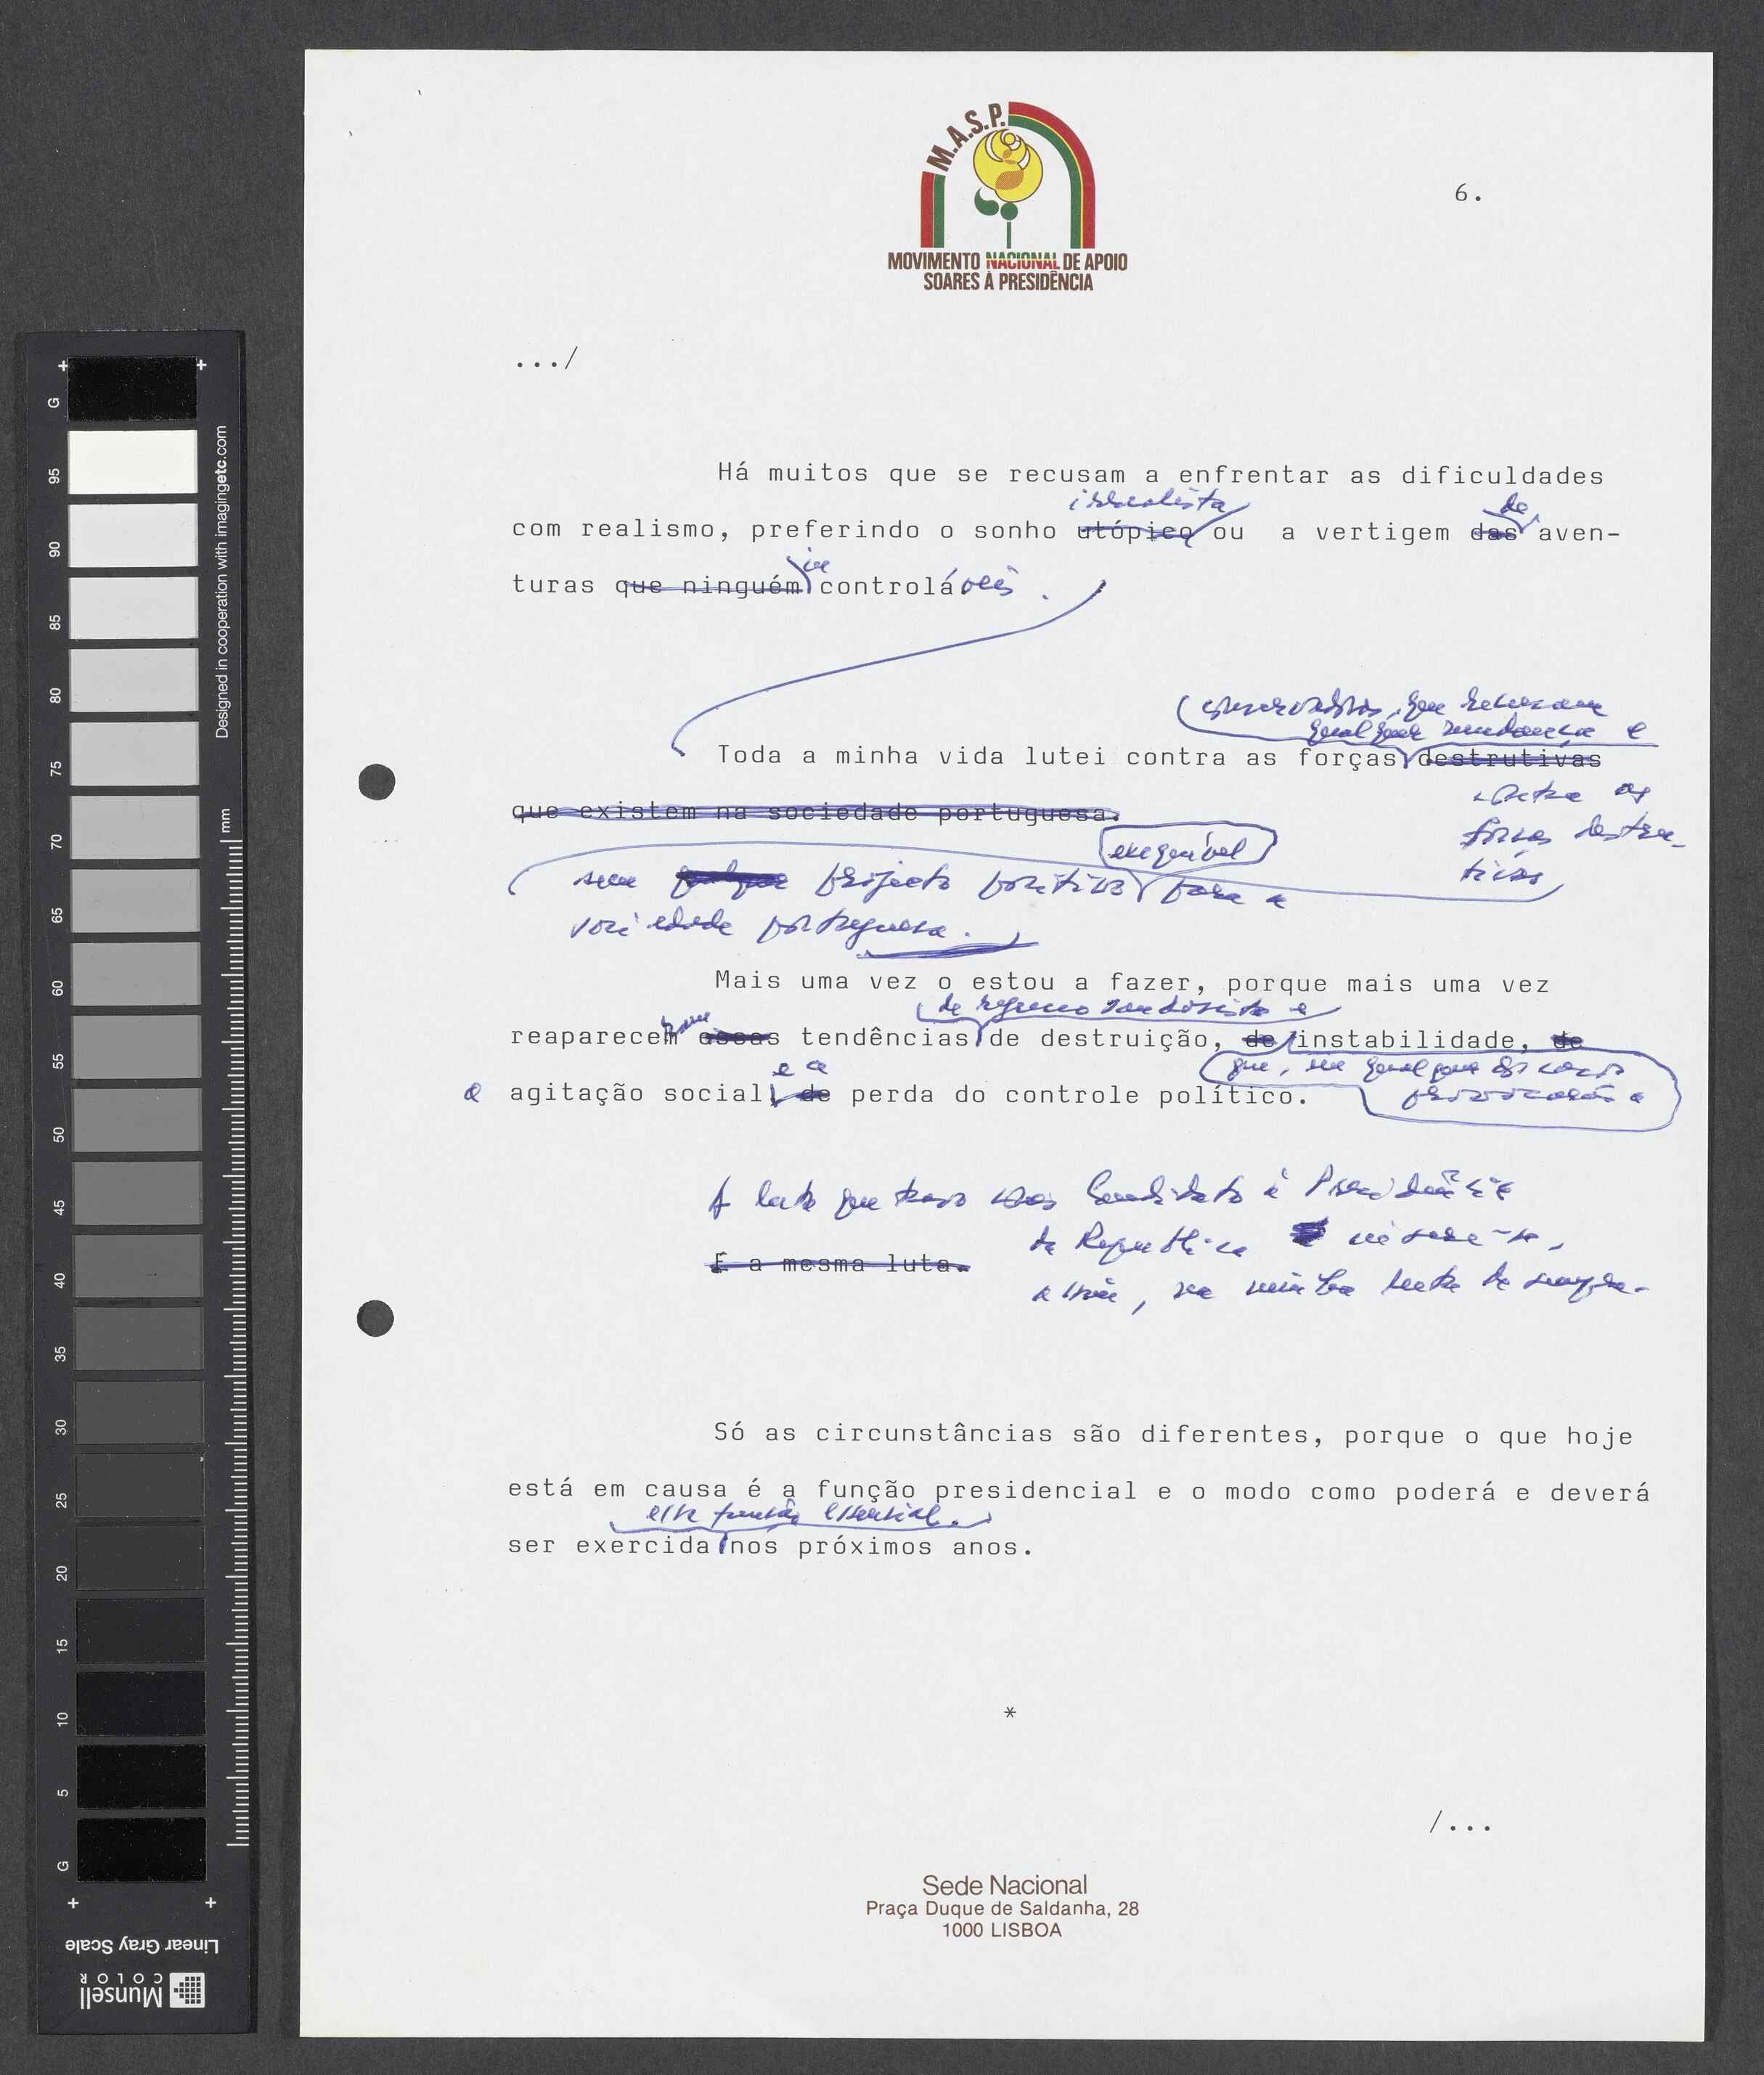 M.A.S.P.
MOVIMENTO NACIONAL DE APOIO
SOARES À PRESIDÊNCIA
6.
.../
Há muitos que se recusam a enfrentar as dificuldades
irrealista de
com realismo, preferindo o sonho utópico ou a vertigem das aven-
in
turas que ninguém controláveis.
conservadoras, que recusam
qualquer mudança e
Toda a minha vida lutei contra as forças destrutivas
contra as
que existem na sociedade portuguesa.
forças destru-
tivas
exequível
sem qualquer projecto político para a
sociedade portuguesa.
Mais uma vez o estou a fazer, porque mais uma vez
de regresso saudosista e
reaparecem essas tendências de destruição, de instabilidade, de
e a
que, em qualquer dos casos
provocarão a
a agitação social, de perda do controle político.
A luta que travo como Candidato à Presidência
da República insere-se,
É a mesma luta.
assim, na minha luta de sempre.
Só as circunstâncias são diferentes, porque o que hoje
está em causa é a função presidencial e o modo como poderá e deverá
essa função essencial.
ser exercida nos próximos anos.
*
/...
Sede Nacional
Praça Duque de Saldanha, 28
1000 LISBOA
+ +
G
95
90
85
80
75
70
65
60
55
50
45
40
35
30
25
20
15
10
5
G
+ +
mm
Designed in cooperation with imagingetc.com
Linear Gray Scale
Munsell
COLOR